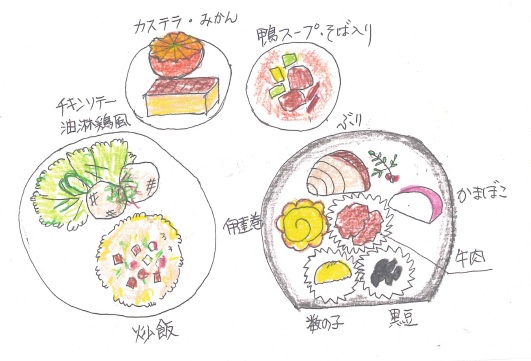 カステラ・みかん
鴨スープ・そば入り
チキンソテー
油淋鶏風
ぶり
かまぼこ
伊達巻
牛肉
数の子
黒豆
炒飯